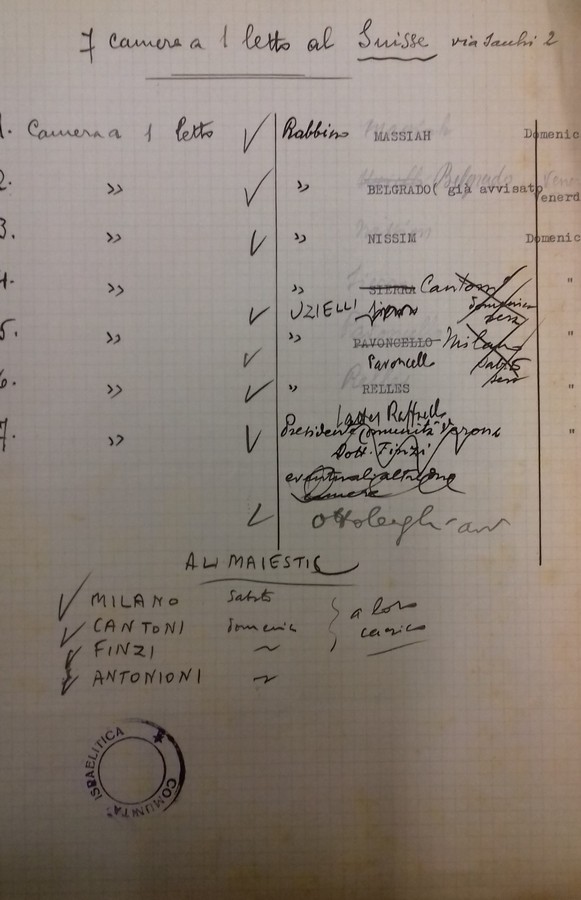 7 camere a 1 letto al Suisse via Sacchi 2
1. Camera a 1 letto Rabbino MASSIAH Domenic
2. " " BELGRADO( già avvisato Venerd
3. " " NISSIM Domenic
4. " " SIERRA Cantoni domenica sera "
UZIELLI
5. " " PAVONCELLO Milano Sab. sera "
Pavoncello
6. " " RELLES "
Raffaello
7. " Presidente Comunità Verona "
Dott. Finzi
eventuali altre due
camere
Ottolenghi
AL MAIESTIC
MILANO Sabato
CANTONI Domenica a loro
FINZI ~ carico
ANTONIONI ~
COMUNITA' ISRAELITICA